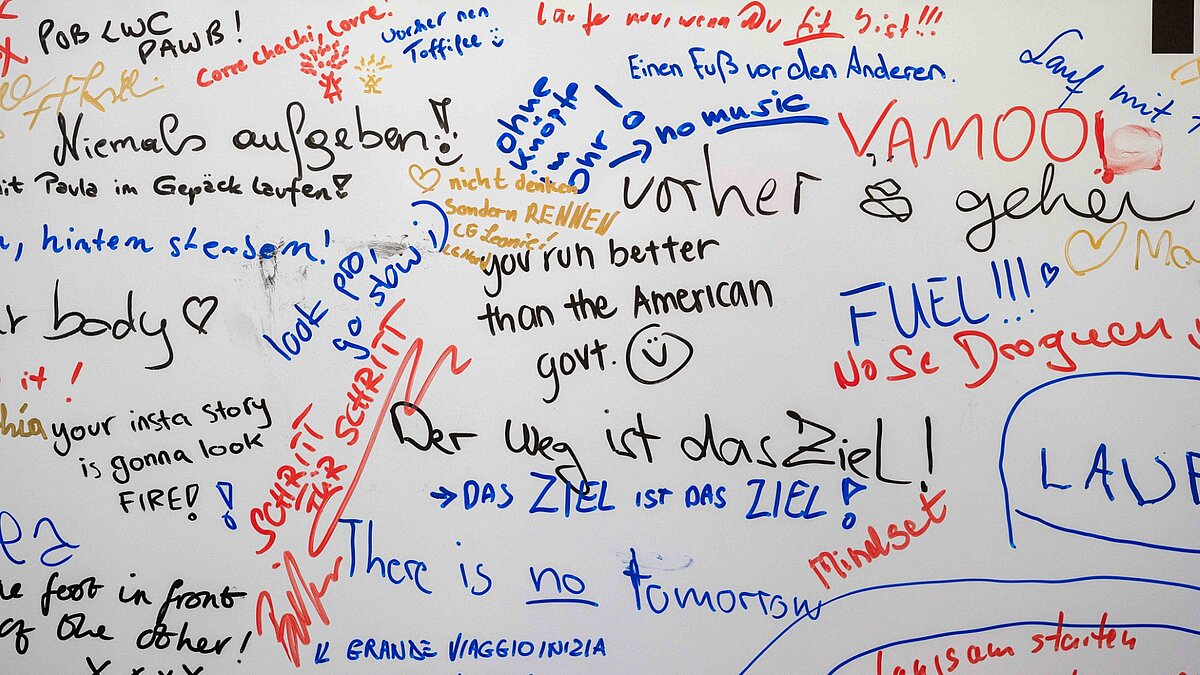 POB LWC
PAWB!
Corre Chachi, Corre!
vorher nen
Toffifee
laufe nur, wenn Du fit bist!!!
Einen Fuß vor den Anderen.
Lauf mit
Niemals aufgeben!
ohne
Knöpfe
im
Ohr!
→ no music
VAMOO!
mit Paula im Gepäck laufen!
nicht denken
sondern RENNEN
LG Leonie!
vorher & gehen
hinten sterben!
look pro,
go slow ;)
you run better
than the American
govt.
FUEL!!!
No Se Droguen
body ♡
it!
your insta story
is gonna look
FIRE!!
SCHRITT
FÜR SCHRITT
Der Weg ist das Ziel!
→ DAS ZIEL IST DAS ZIEL!
Mindset
LAUF
There is no tomorrow
feet in front
of the other!
IL GRANDE VIAGGIO INIZIA
langsam starten